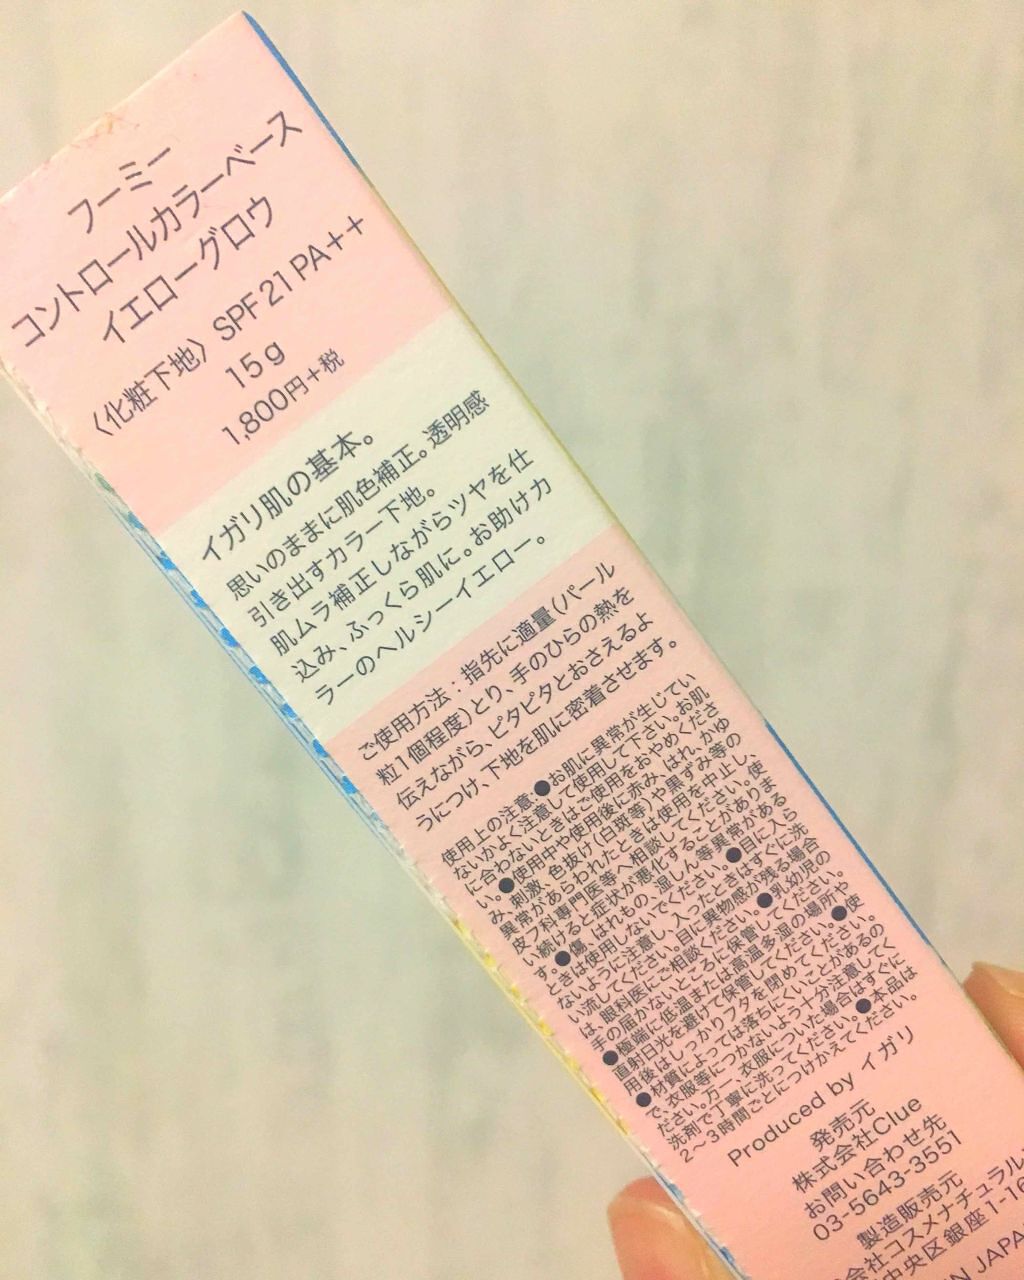 フーミー
コントロールカラーベース
イエローグロウ
〈化粧下地〉 SPF21 PA++
15g
1,800円+税
イガリ肌の基本。
思いのままに肌色補正。透明感
引き出すカラー下地。
肌ムラ補正しながらツヤを仕
込み、ふっくら肌に。お助けカ
ラーのヘルシーイエロー。
ご使用方法:指先に適量(パール
粒1個程度)とり、手のひらの熱を
伝えながら、ピタピタとおさえるよ
うにつけ、下地を肌に密着させます。
使用上の注意:●お肌に異常が生じてい
ないかよく注意して使用して下さい。お肌
に合わないときはご使用をおやめくださ
い。●使用中や使用後に赤み、はれ、かゆ
み、刺激、色抜け(白斑等)や黒ずみ等の
異常があらわれたときは使用を中止し、
皮フ科専門医等へ相談してください。使
い続けると症状が悪化することがありま
す。●傷、はれもの、湿しん等異常がある
ときは使用しないでください。●目に入ら
ないように注意し、入ったときはすぐに洗
い流してください。目に異物感が残る場合
は、眼科医にご相談ください。●乳幼児の
手の届かないところに保管してください。
●極端に低温または高温多湿の場所や
直射日光を避けて保管してください。●使
用後はしっかりフタを閉めてください。
●材質によっては落ちにくいことがあるの
で、衣服等につかないよう十分注意してく
ださい。万一、衣服についた場合はすぐに
洗剤で丁寧に洗ってください。●本品は
2〜3時間ごとにつけかえてください。
Produced by イガリ
発売元
株式会社Clue
お問い合わせ先
03-5643-3551
製造販売元
会社コスメナチュラル
中央区銀座1-16
N JAPA